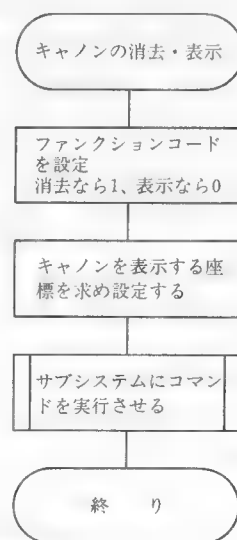 キャノンの消去・表示
ファンクションコード
を設定
消去なら1、表示なら0
キャノンを表示する座
標を求め設定する
サブシステムにコマン
ドを実行させる
終 り